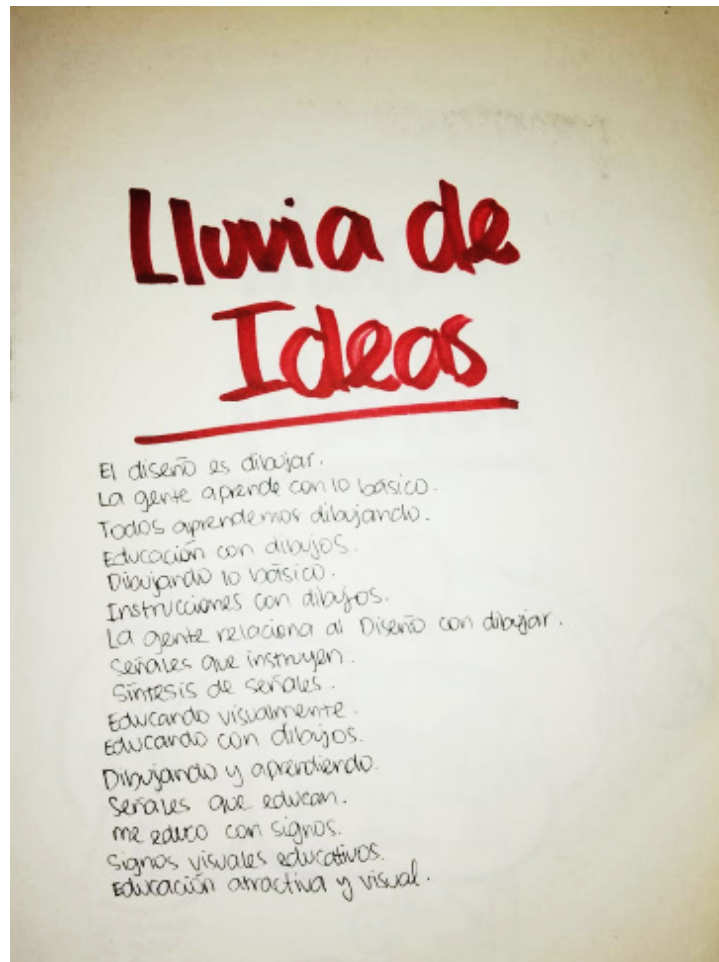 Lluvia de
Ideas
El diseño es dibujar.
La gente aprende con lo básico.
Todos aprendemos dibujando.
Educación con dibujos.
Dibujando lo básico.
Instrucciones con dibujos.
La gente relaciona al Diseño con dibujar.
Señales que instruyen.
Síntesis de señales.
Educando visualmente.
Educando con dibujos.
Dibujando y aprendiendo.
Señales que educan.
me educo con signos.
Signos visuales educativos.
Educación atractiva y visual.